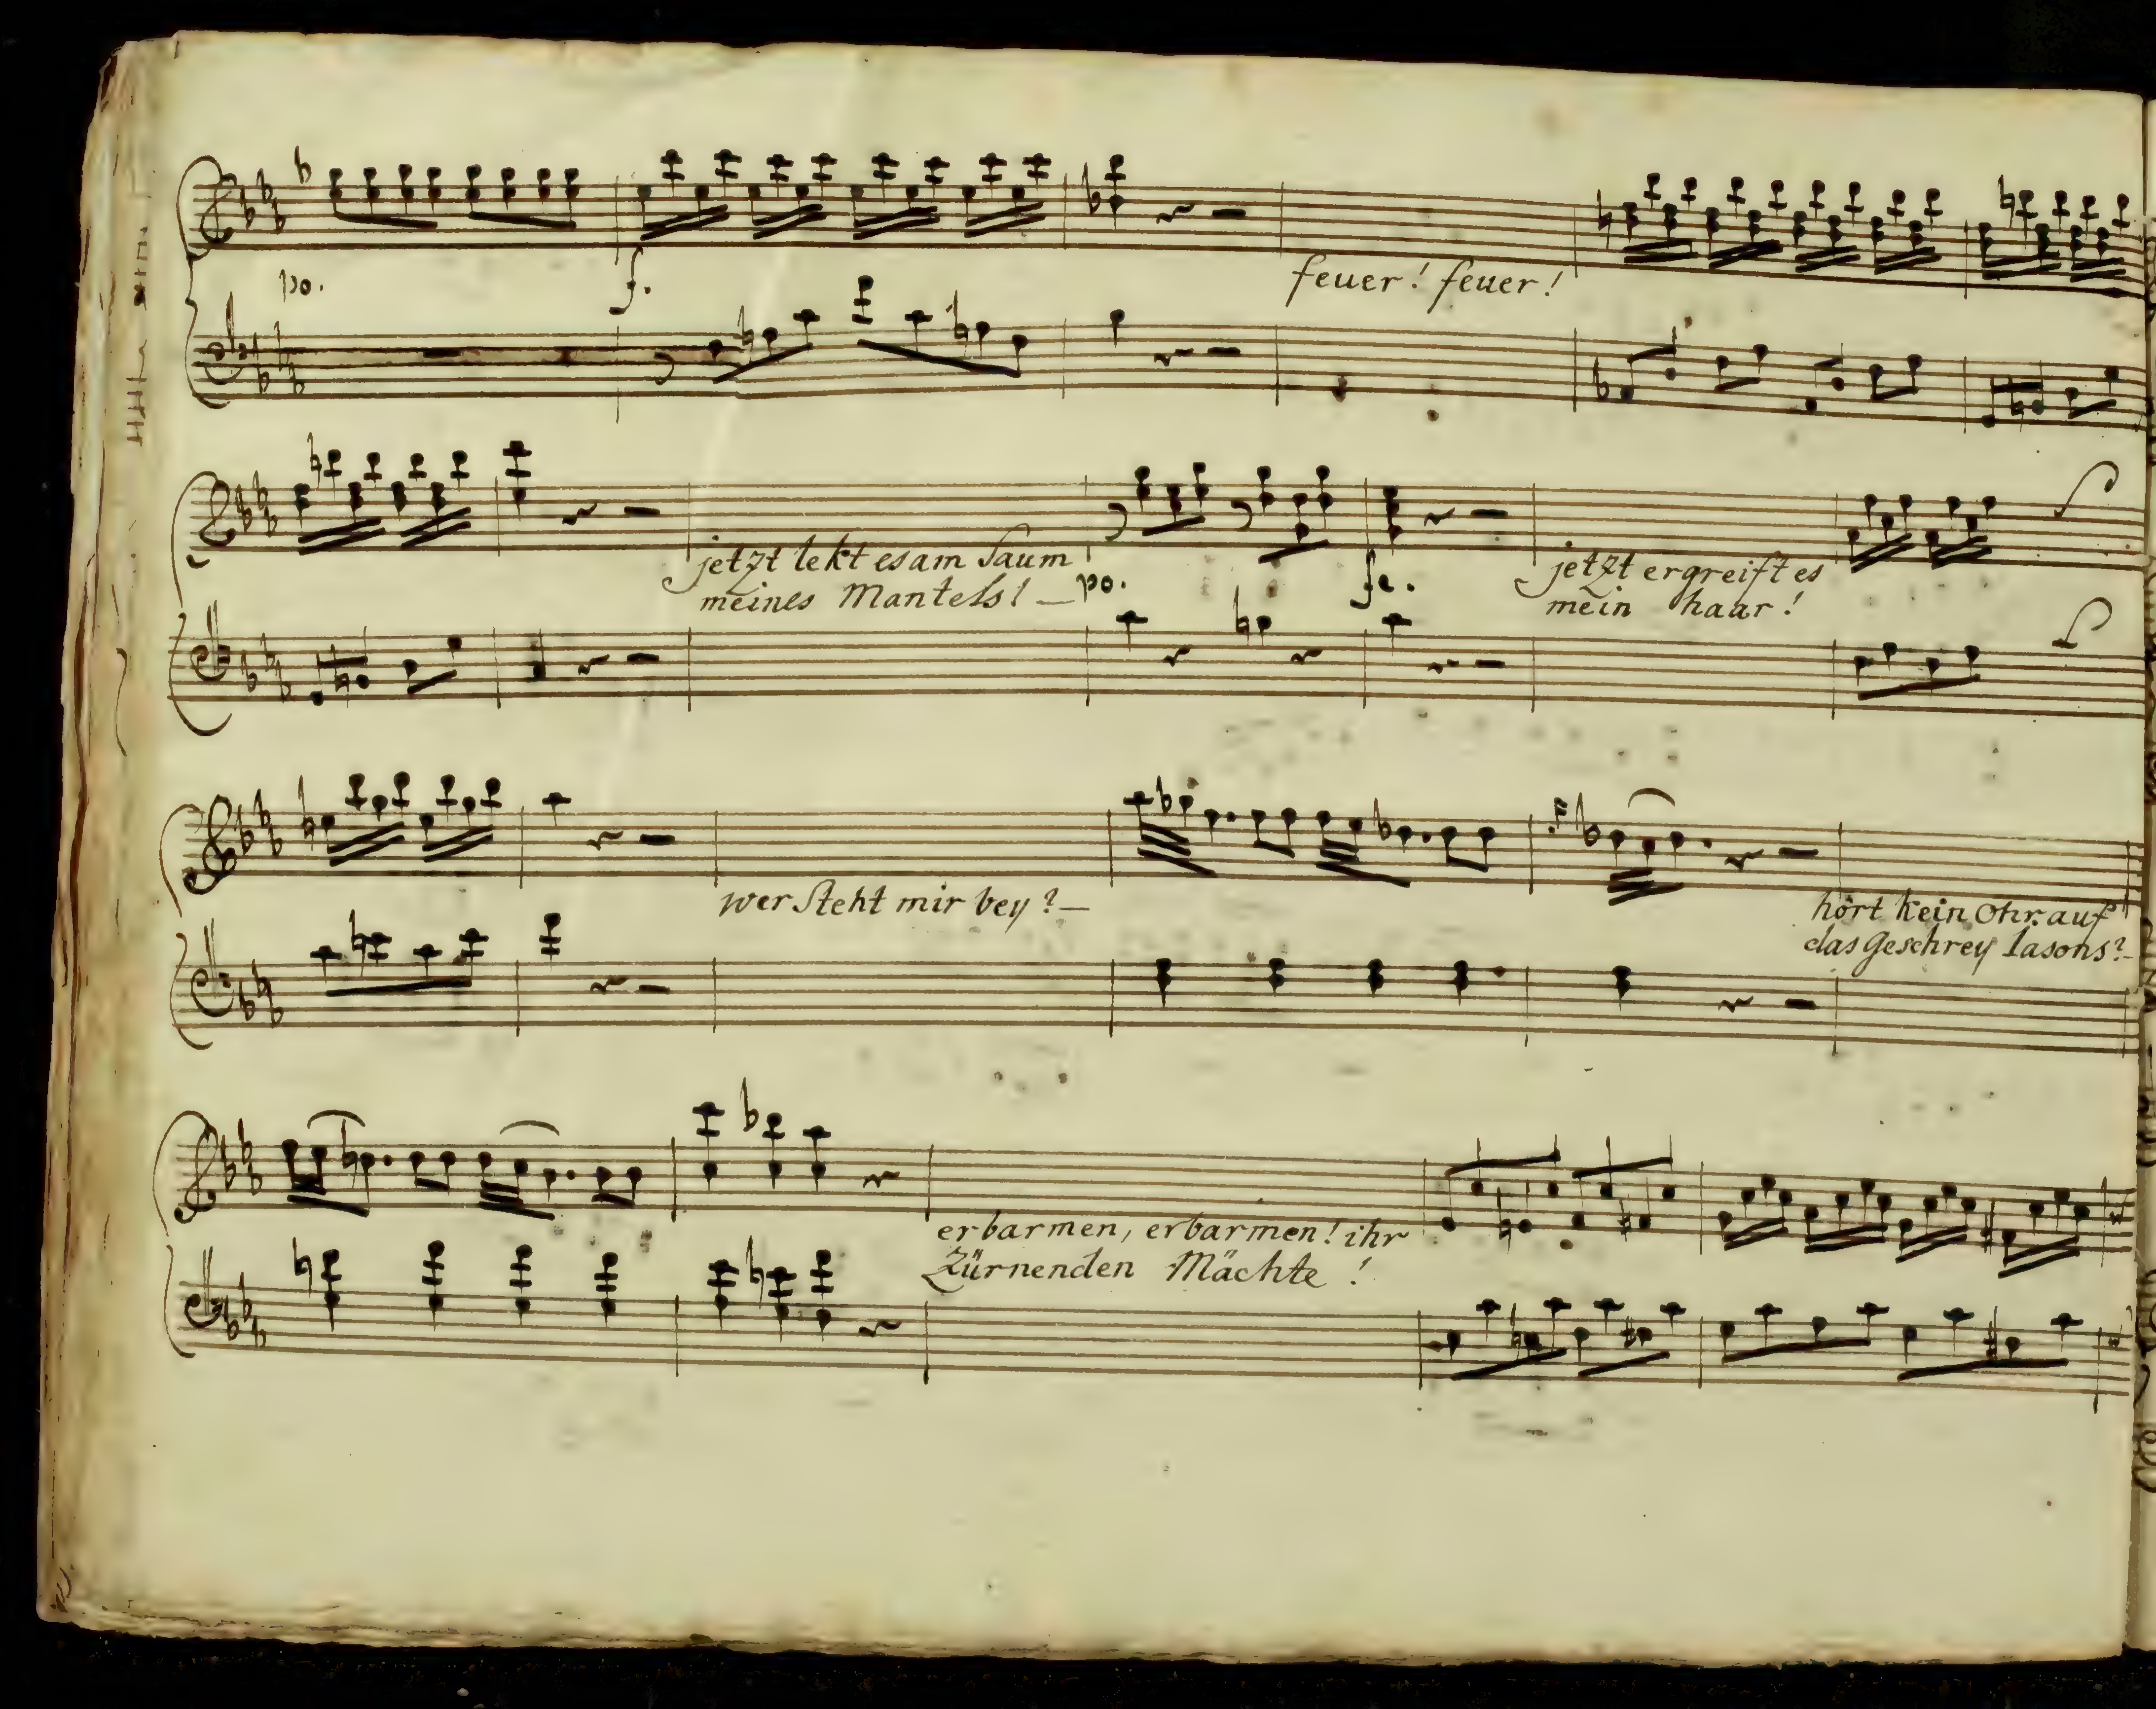 po.
f.
feuer! feuer!
jetzt lekt es am Saum
meines Mantels! —
po.
fe.
jetzt ergreift es
mein haar!
wer steht mir bey? —
hört kein Ohr auf
das Geschrey Iasons? -
erbarmen, erbarmen! ihr
Zürnenden Mächte!